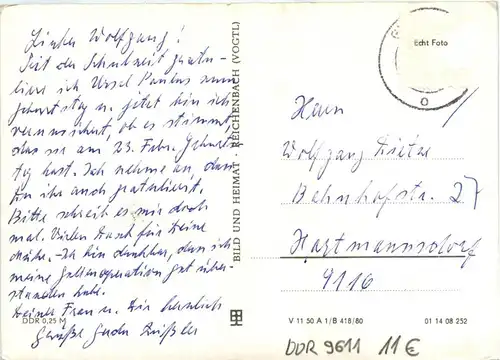 Lieber Wolfgang!
Seit der Schulzeit gratu-
liere ich Ursel Paulus zum
Geburtstag u. jetzt bin ich
verunsichert, ob es stimmt,
das sie am 23. Febr. Geburts-
tag hat. Ich nehme an, dass
Du ihr auch gratulierst.
Bitte schreib es mir doch
mal. Vielen Dank für Deine
Mühe. Ich bin dankbar, dass ich
meine Gallenoperation gut über-
standen habe.
Deiner Frau u. Dir herzliche
Grüße
DDR 0,25 M
BILD UND HEIMAT · REICHENBACH (VOGTL)
Echt Foto
Herrn
Wolfgang Dietze
Bahnhofstr. 27
Hartmannsdorf
9116
V 11 50 A 1/B 418/80 01 14 08 252
DDR 9611 11 €